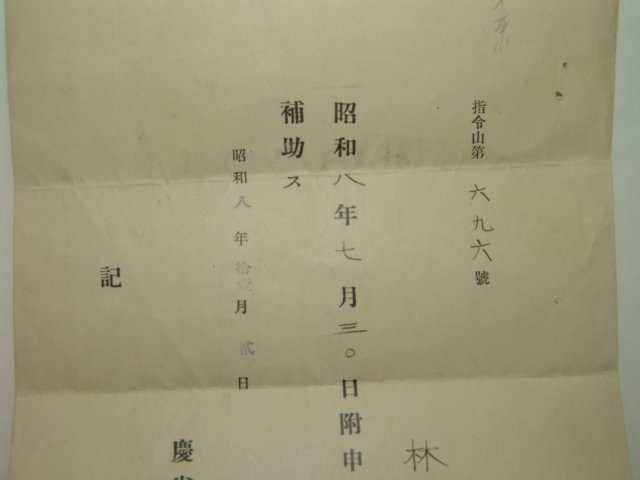 指令山第六九六號
林
昭和八年七月三〇日附申
補助ス
昭和八年拾壹月貳日
慶
記